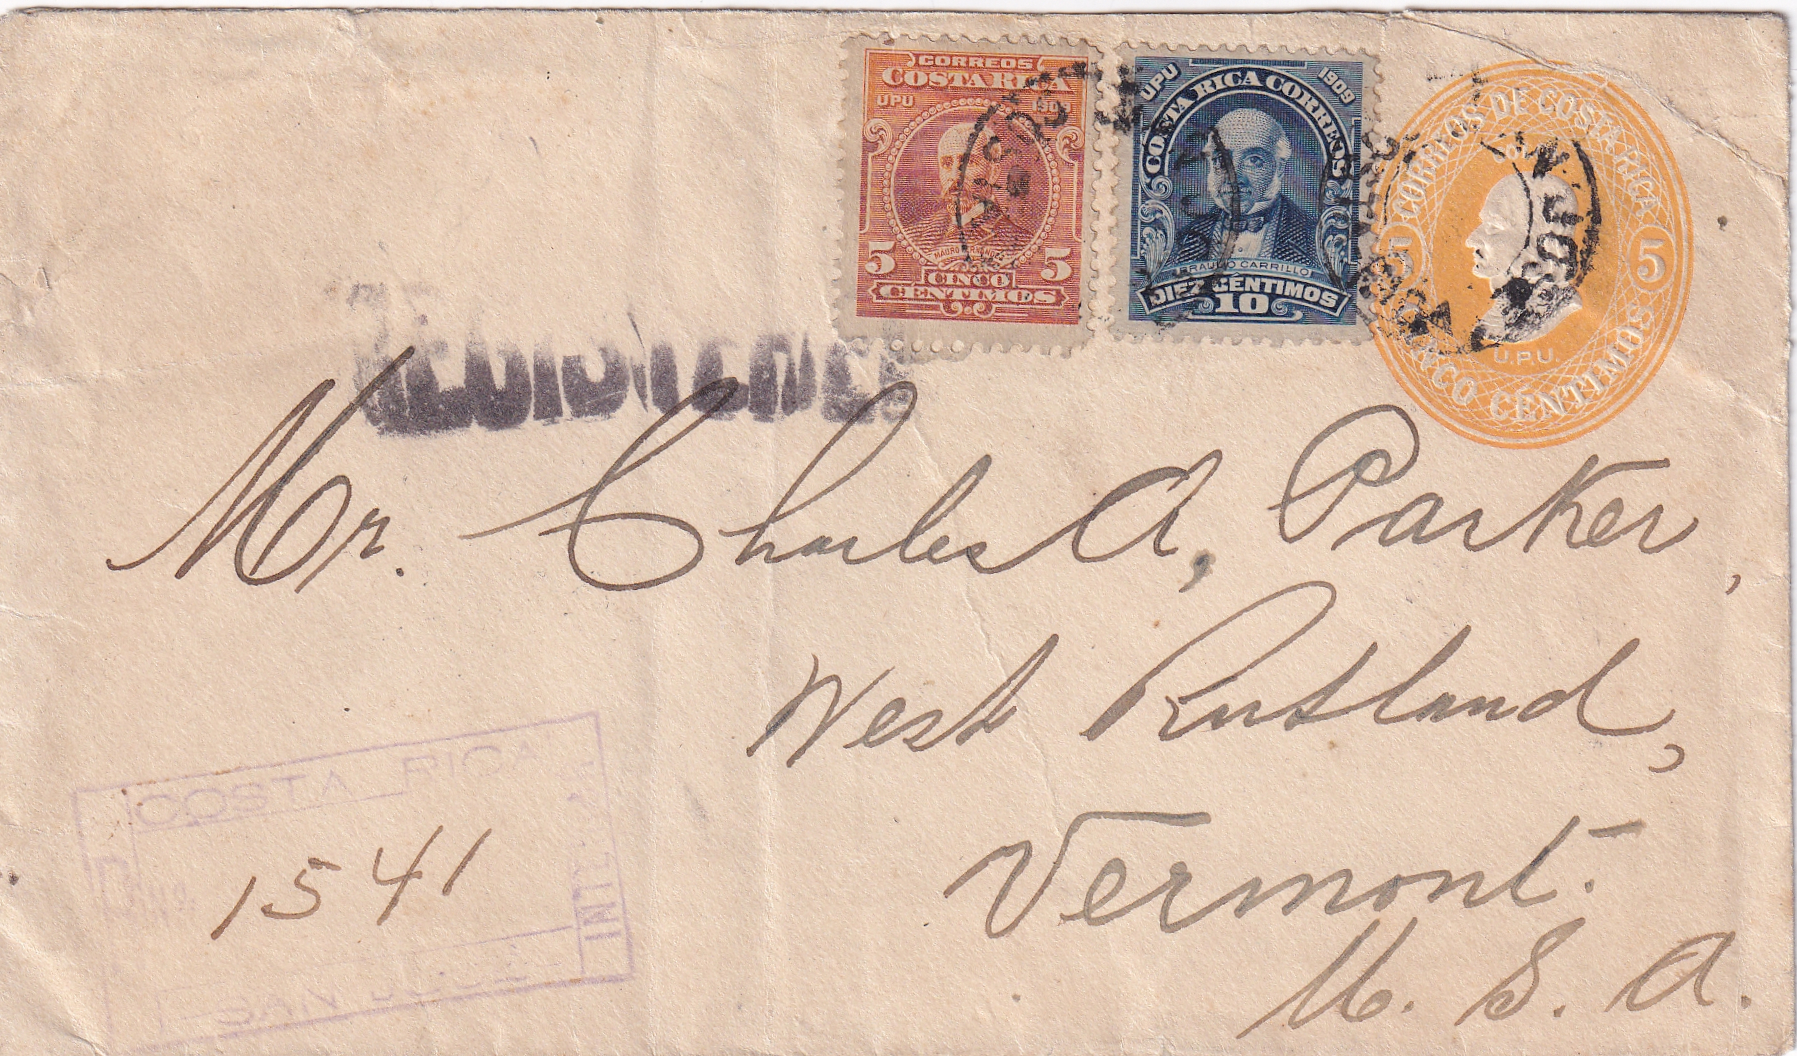 CORREOS
COSTA RICA
UPU 1909
5 5
CINCO
CENTIMOS
UPU 1909
COSTA RICA CORREOS
BRAULIO CARRILLO
DIEZ CÉNTIMOS
10
CORREOS DE COSTA RICA
5 5
U.P.U.
CINCO CENTIMOS
Mr. Charles A, Parker,
West Rutland,
Vermont.
U. S. A.
COSTA RICA
1541
SAN JOSE